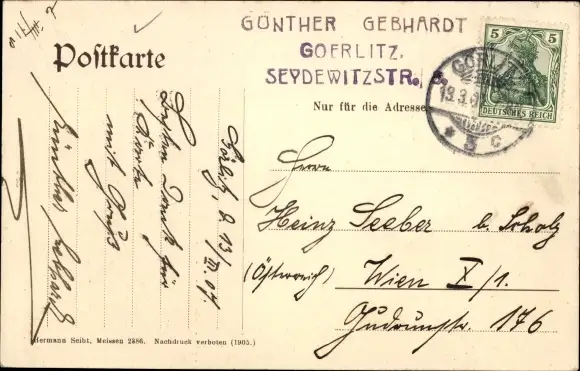 GÜNTHER GEBHARDT
GOERLITZ,
SEYDEWITZSTR.
Postkarte
Nur für die Adresse
5 5
DEUTSCHES REICH
GÖRLITZ
13.3.0
* 3 c
Görlitz, d. 13/III. 07.
Besten Dank für
Karte
mit Gruß
Günther Gebhardt
Herrn
Heinz Seeber b. Scholz
(Österreich) Wien X/1.
Gudrunstr. 176
Hermann Seibt, Meissen 2886. Nachdruck verboten (1905.)